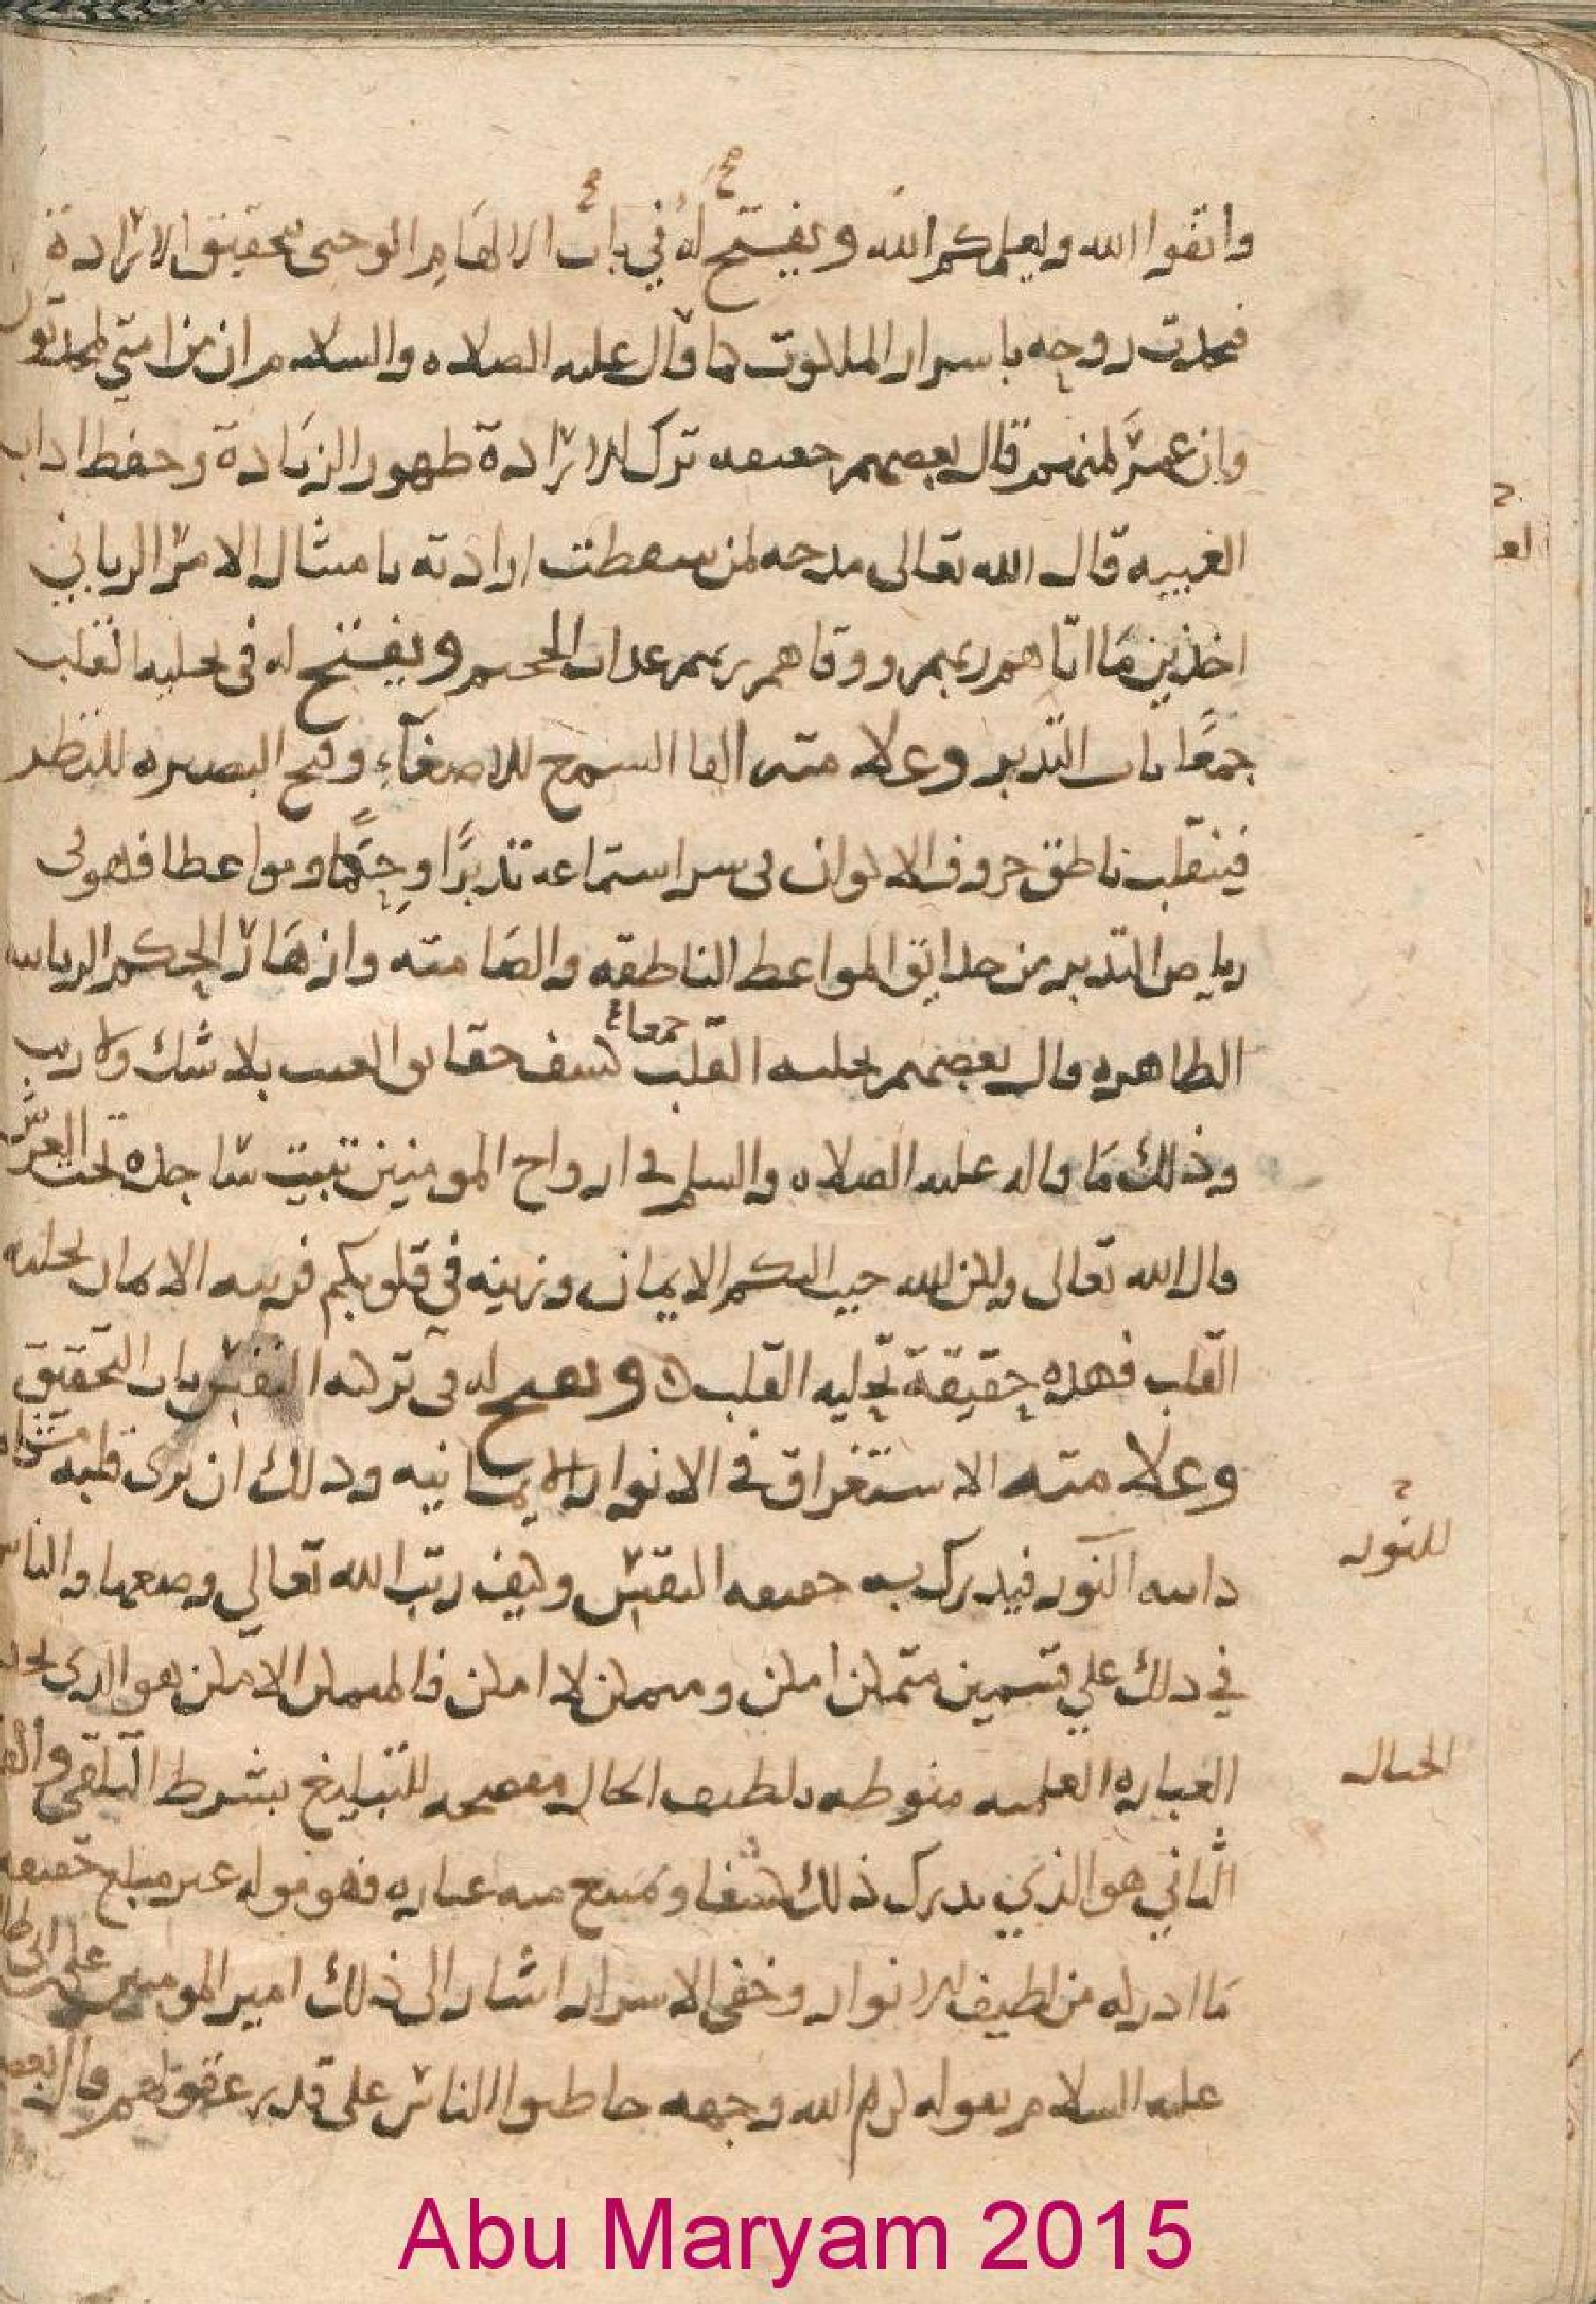 واتقوا الله ويعلمكم الله ويفتح له في باب الالهام الوحى تحقيق الارادة
فتحدث روحه باسرار الملكوت كما قال عليه الصلاه والسلام ان من امتي لمحدثون
وان عمر لمنهم قال بعضهم حقيقه ترك الارادة ظهور الزيادة وحفظ اداب
الغيبيه قال الله تعالى مدحه لمن سقطت ارادته بامتثال الامر الرباني
اخذين ما اتاهم ربهم ووقاهم ربهم عذاب الجحيم ويفتح له في تجليه القلب
جمعا باب التدبر وعلامته القا السمع للاصغآء وفتح البصيره للنظر
فينقلب ناطق حروف الاكوان فى سر استماعه تدبرًا وحِكَمًا ومواعظا فهو فى
رياض التدبر من حدايق المواعظ الناطقه والصامته وازهار الحكم الربانيه
الظاهره قال بعضهم تجليه القلب كشف حقايق الغيب بلا شك ولا ريب
جمعا
وذلك ما قاله عليه الصلاه والسلم في ارواح المومنين تبيت ساجده تحت العرش
قال الله تعالى ولكن الله حبب اليكم الايمان وزينه في قلوبكم فزينه الايمان تجليه
القلب فهذه حقيقة تجليه القلب ويفتح له في تزكيه النفس باب التحقيق
وعلامته الاستغراق في الانوار الايمانيه وذلك ان يرى قلبه
للنور
داسه النور فيدرك به حقيقه النفس وكيف رتب الله تعالي وضعها والناس
في ذلك علي قسمين متمكن امكن ومتمكن لا امكن فالمتمكن الامكن هو الذي
الخيال
العباره العلميه منوطه بلطيف الحال مفصحه للتبليغ بشرط التلقي
الثاني هو الذي يدرك ذلك كشفا ويمتنع منه عباره فهو قوله غير مبلغ حقيقه
ما ادركه من لطيف الانوار وخفى الاسرار اشار الى ذلك امير المومنين على
عليه السلام بقوله كرم الله وجهه خاطبوا الناس على قدر عقولهم قال
Abu Maryam 2015